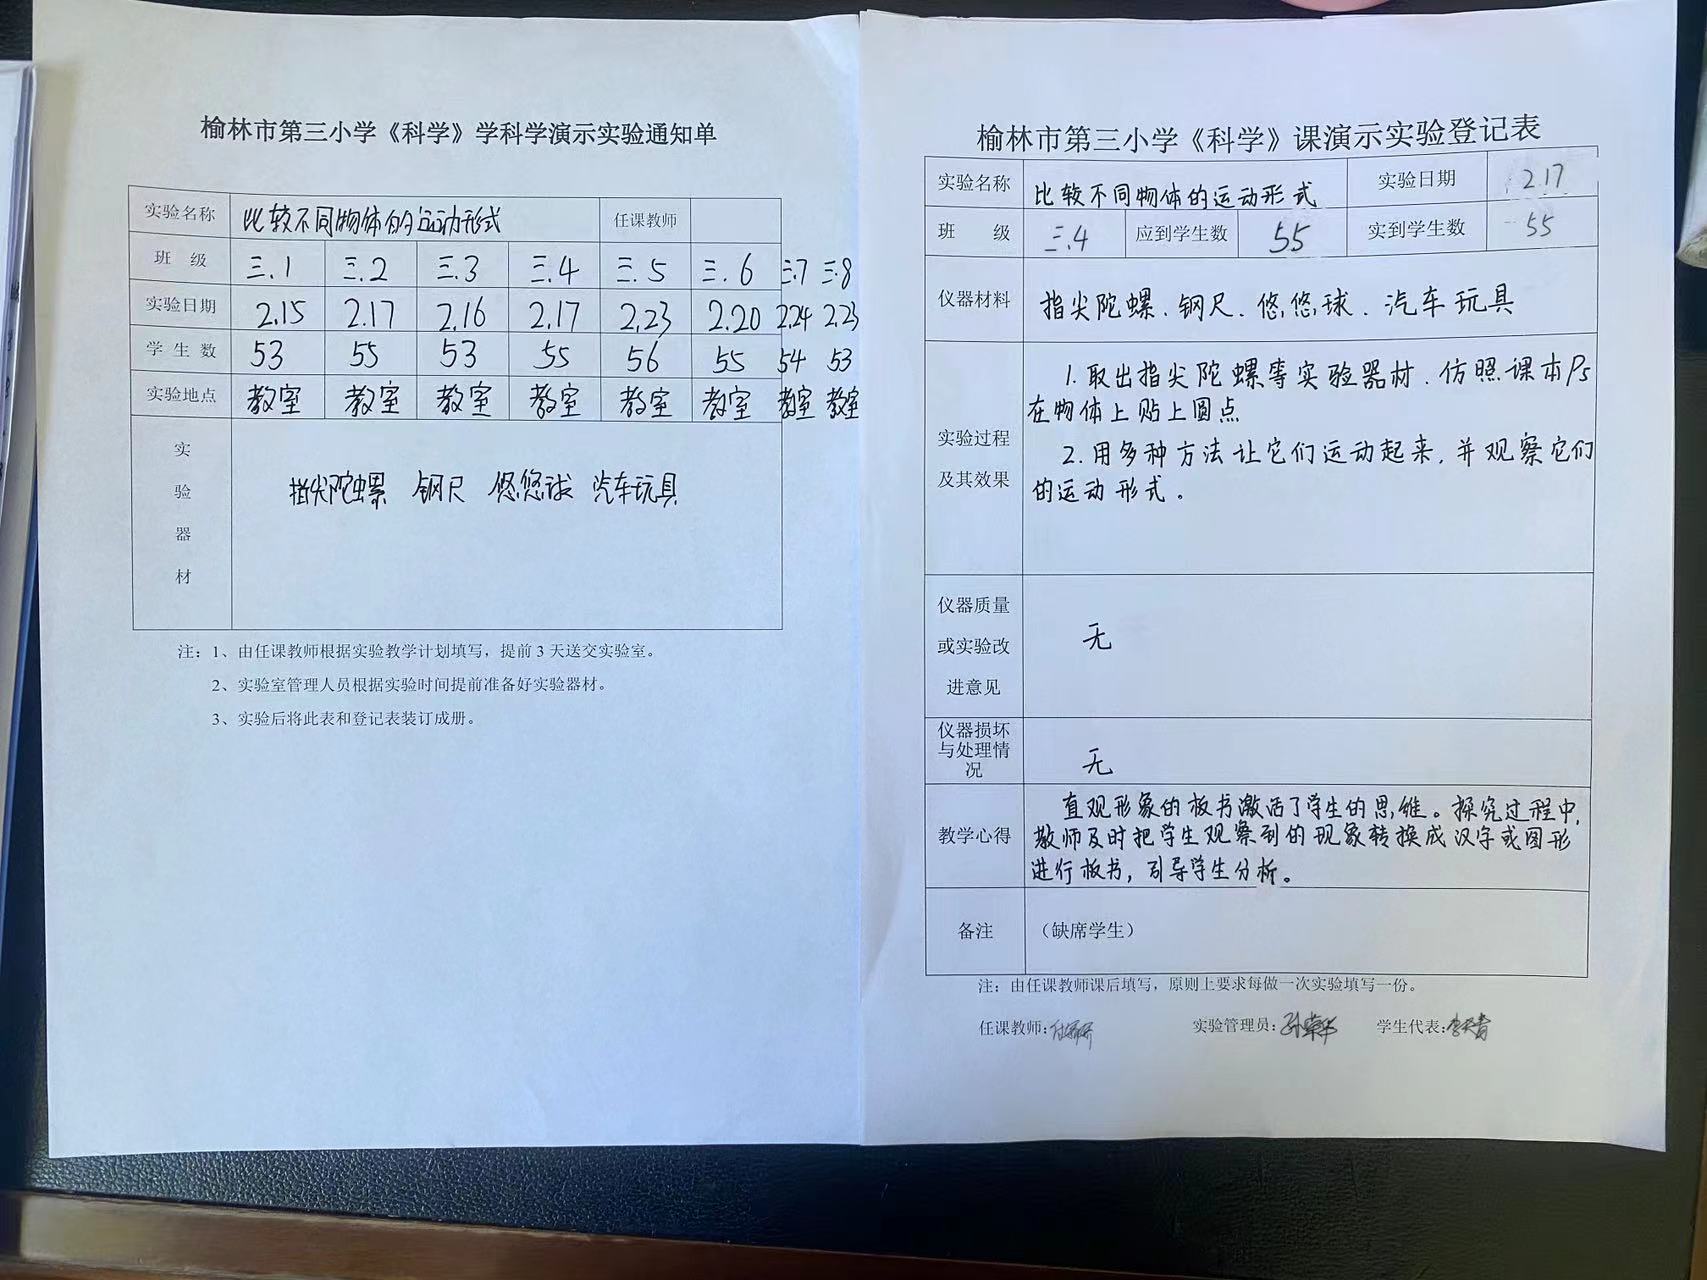 榆林市第三小学《科学》学科学演示实验通知单
实验名称 比较不同物体的运动形式 任课教师
班 级 三.1 三.2 三.3 三.4 三.5 三.6 三.7 三.8
实验日期 2.15 2.17 2.16 2.17 2.23 2.20 2.24 2.23
学 生 数 53 55 53 55 56 55 54 53
实验地点 教室 教室 教室 教室 教室 教室 教室 教室
实
验
器
材
指尖陀螺 钢尺 悠悠球 汽车玩具
注：1、由任课教师根据实验教学计划填写，提前 3 天送交实验室。
2、实验室管理人员根据实验时间提前准备好实验器材。
3、实验后将此表和登记表装订成册。
榆林市第三小学《科学》课演示实验登记表
实验名称 比较不同物体的运动形式 实验日期 2.17
班 级 三.4 应到学生数 55 实到学生数 55
仪器材料 指尖陀螺、钢尺、悠悠球、汽车玩具
实验过程
及其效果
1.取出指尖陀螺等实验器材.仿照课本P5
在物体上贴上圆点
2.用多种方法让它们运动起来,并观察它们
的运动形式。
仪器质量
或实验改
进意见
无
仪器损坏
与处理情
况
无
教学心得
直观形象的板书激活了学生的思维。探究过程中,
教师及时把学生观察到的现象转换成汉字或图形
进行板书，引导学生分析。
备注 （缺席学生）
注：由任课教师课后填写，原则上要求每做一次实验填写一份。
任课教师: 实验管理员: 学生代表: